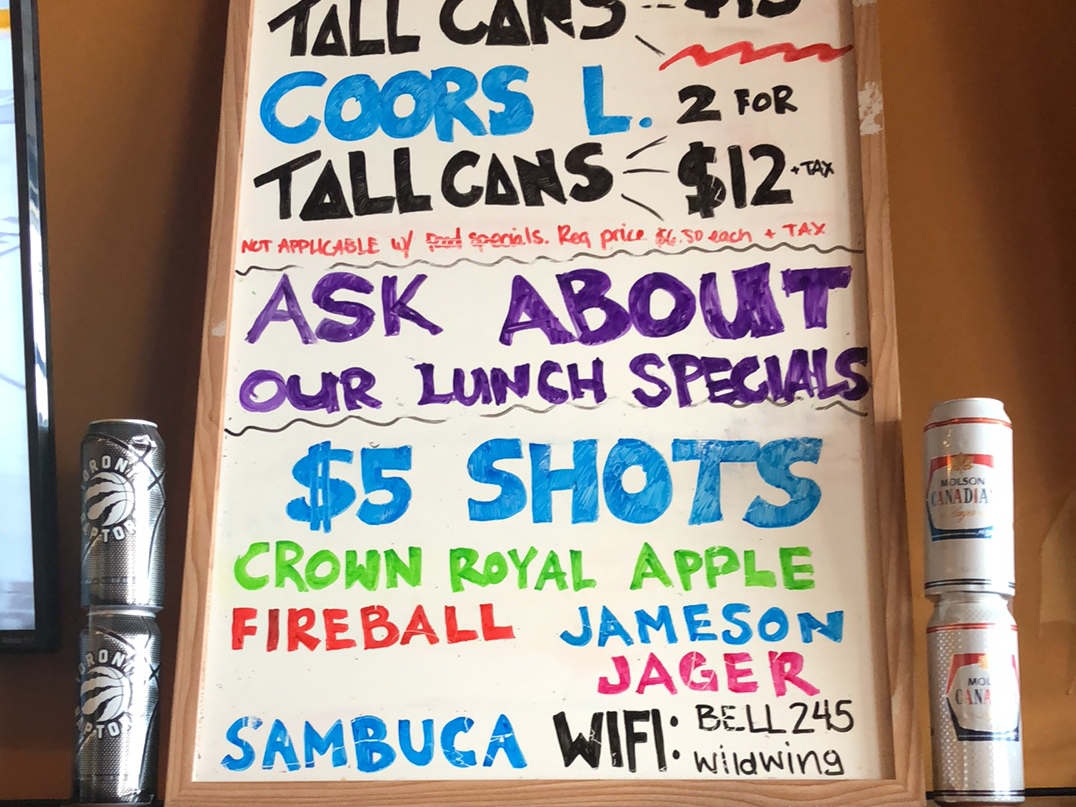 TALL CANS $13
COORS L. 2 FOR
TALL CANS $12 + TAX
NOT APPLICABLE w/ food specials. Reg price $6.50 each + TAX
ASK ABOUT
OUR LUNCH SPECIALS
$5 SHOTS
CROWN ROYAL APPLE
FIREBALL JAMESON
JAGER
SAMBUCA WIFI: BELL245
wildwing
MOLSON
CANADIA
MOL
CANA